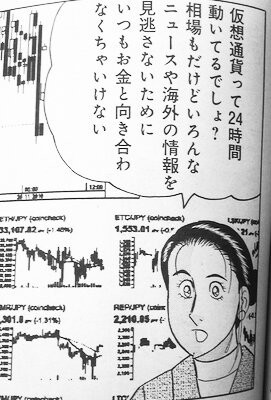 仮想通貨って24時間
動いてるでしょ?
相場もだけどいろんな
ニュースや海外の情報を
見逃さないために
いつもお金と向き合わ
なくちゃいけない
00:00
12:00
ETH/JPY (coincheck)
33,167.82
(-1.48%)
ETC/JPY (coincheck)
1,553.01
(-1.31%)
REP/JPY
2,216.85